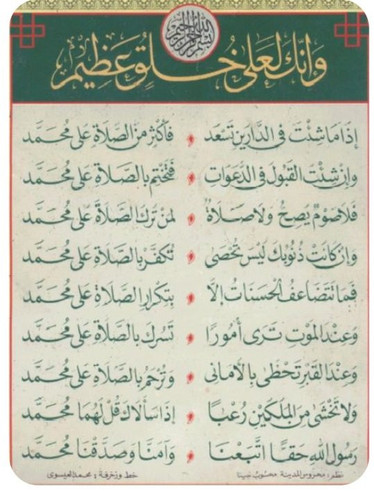 بسم الله الرحمن الرحيم
وَإنَّكَ لَعَلى خُلُقٍ عَظِيمٍ
إِذَا مَاشِئْتَ فِي الدَّارَيْنِ تَسْعَد فَأَكْثِرْ مِنَ الصَّلَاةِ عَلَى مُحَمَّد
وَإِنْ شِئْتَ القَبُولَ فِي الدَّعَوَاتِ فَتَخْتِم بِالصَّلَاةِ عَلَى مُحَمَّد
فَلَا صَوْمٌ يَصِحُّ وَلَا صَلَاةٌ لِمَنْ تَرَكَ الصَّلَاةَ عَلَى مُحَمَّد
وَإِنْ كَانَتْ ذُنُوبُكَ لَيْسَ تُحْصَى تُكَفَّرْ بِالصَّلَاةِ عَلَى مُحَمَّد
فَمَا تَتَضَاعَفُ الْحَسَنَاتُ إِلَّا بِتِكْرَارِ الصَّلَاةِ عَلَى مُحَمَّد
وَعِنْدَ المَوْتِ تَرَى أُمُورًا تَسُرُّكَ بِالصَّلَاةِ عَلَى مُحَمَّد
وَعِنْدَ القَبْرِ تَحْظَى بِالأَمَانِي وَتُرْحَمُ بِالصَّلَاةِ عَلَى مُحَمَّد
وَلَا تَخْشَى مِنَ المَلَكَيْنِ رُعْبًا إِذَا سَأَلَاكَ قُلْ لَهُمَا مُحَمَّد
رَسُولُ اللهِ حَقًّا اتَّبَعْنَا وَآمَنَّا وَصَدَّقْنَا مُحَمَّد
نظم: محروس المدينة محسوب نبينا خط وزخرفة: محمد العيسوي